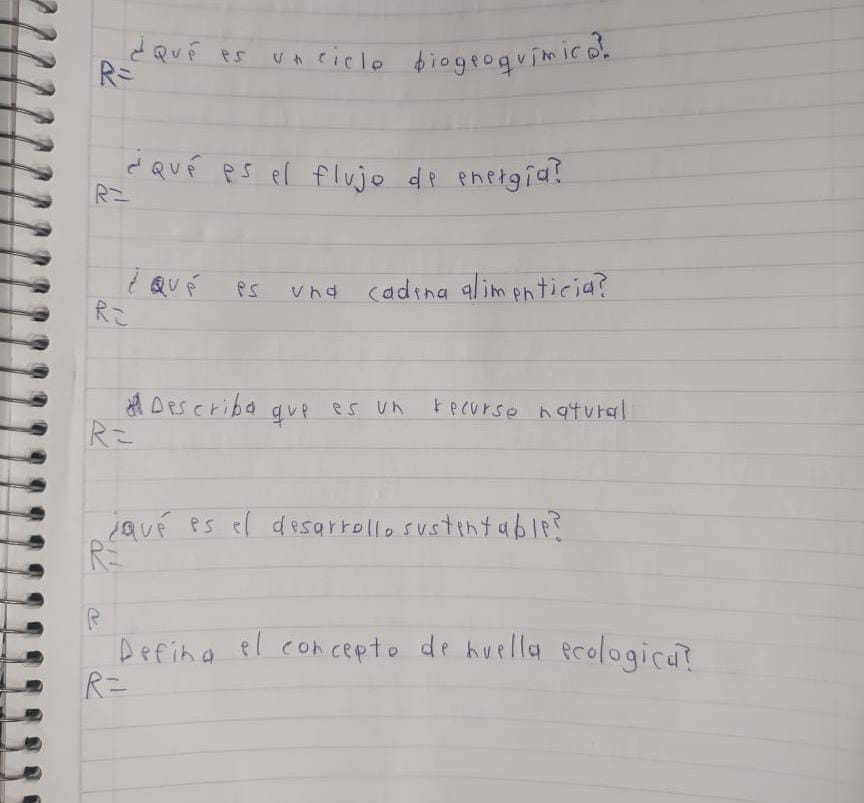 ¿Qué es un ciclo biogeoquímico?
R=
¿Qué es el flujo de energía?
R=
¿Qué es una cadena alimenticia?
R=
Describa que es un recurso natural
R=
¿qué es el desarrollo sustentable?
R=
R
Defina el concepto de huella ecologica?
R=